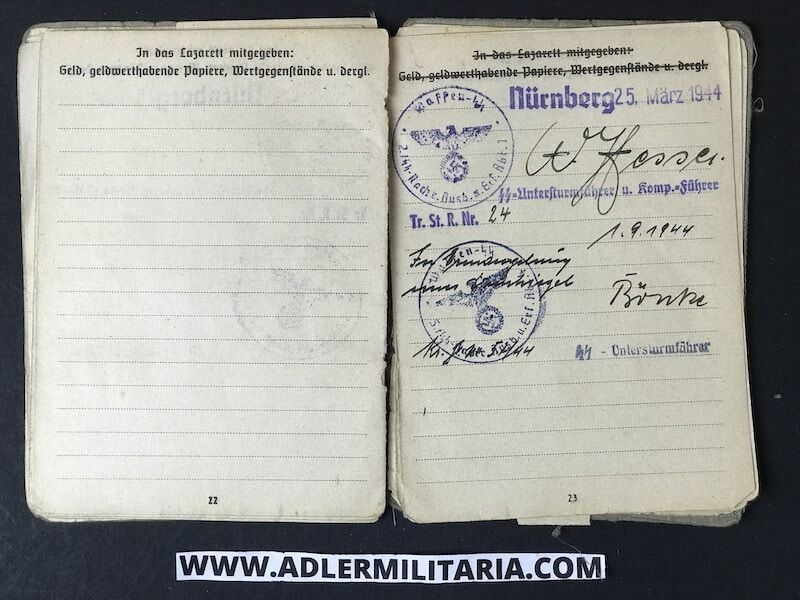 In das Lazarett mitgegeben:
Geld, geldwerthabende Papiere, Wertgegenstände u. dergl.
22
In das Lazarett mitgegeben:
Geld, geldwerthabende Papiere, Wertgegenstände u. dergl.
Nürnberg 25. März 1944
Waffen-SS
2./SS-Nachr. Ausb. u. Ers. Abt. 1
SS-Untersturmführer u. Komp.-Führer
Tr. St. R. Nr. 24
1.9.1944
Waffen-SS
Ausb. u. Ers. Ab
SS - Untersturmführer
23
WWW.ADLERMILITARIA.COM